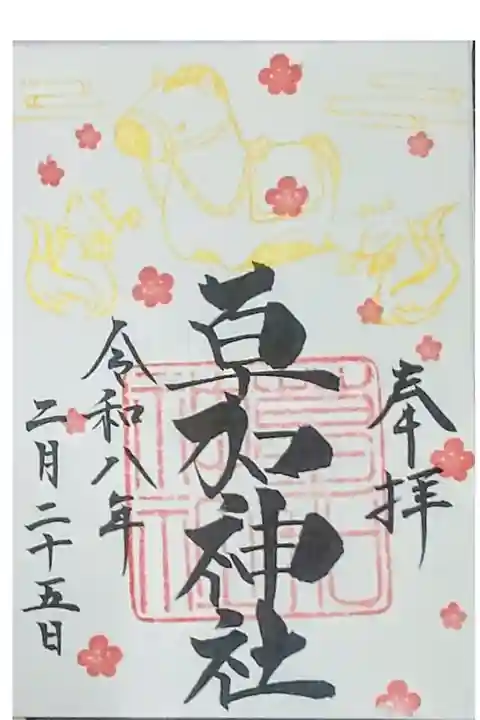 奉拝
草加神社
令和八年
二月二十五日